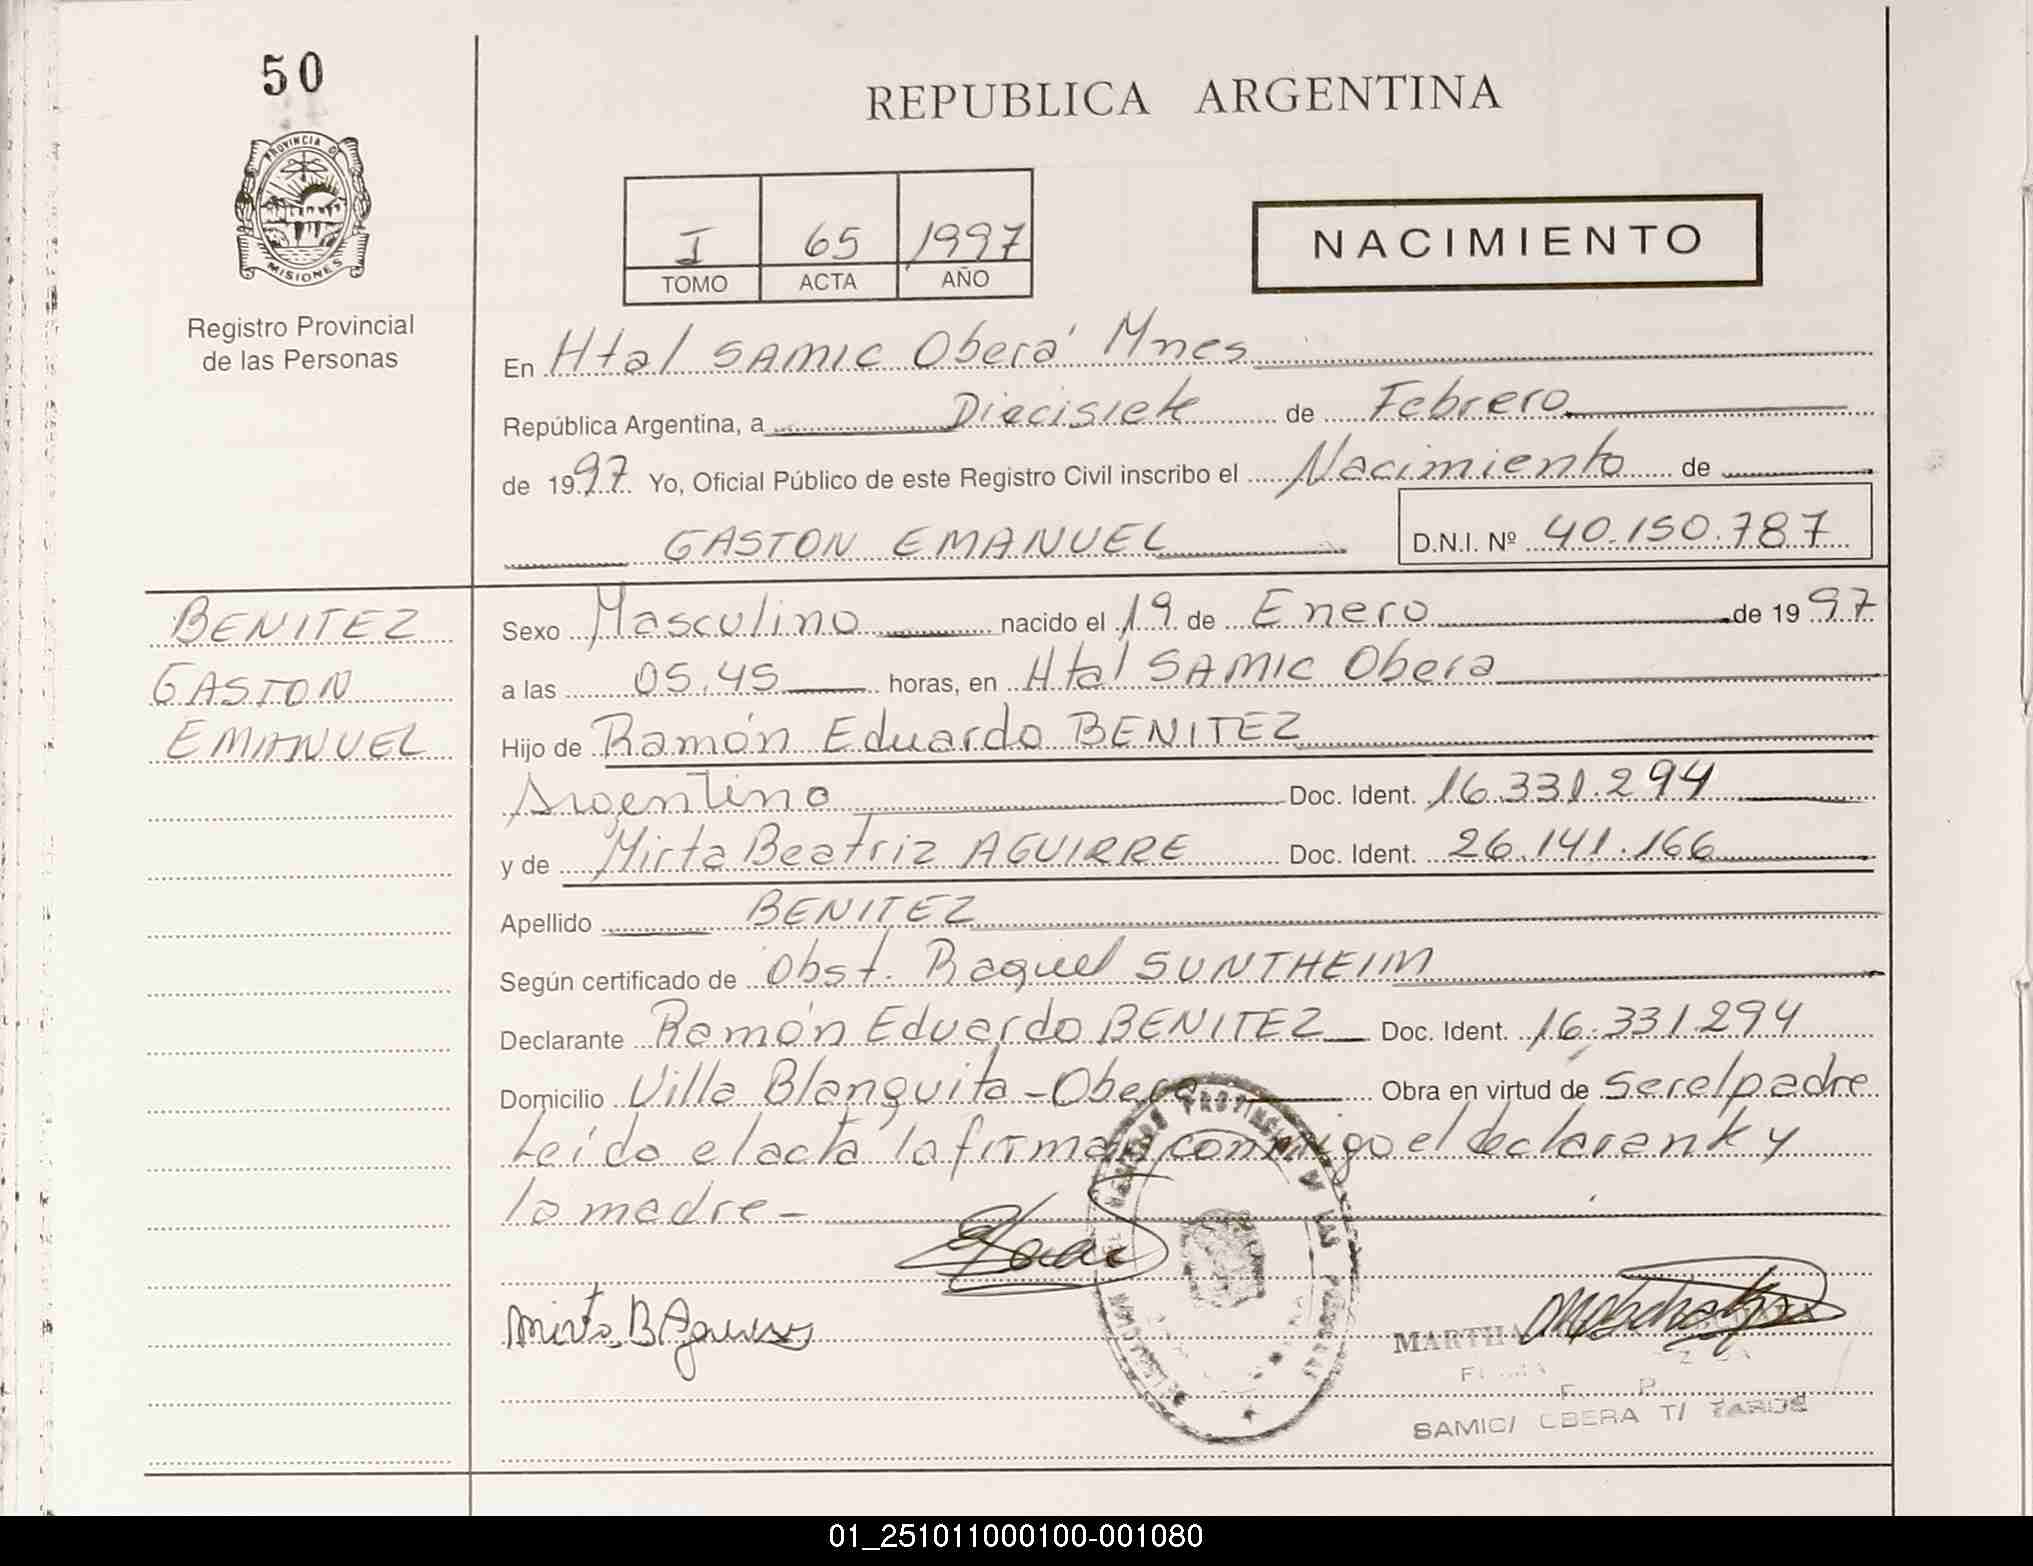 50
PROVINCIA D
MISIONES
Registro Provincial
de las Personas
REPUBLICA ARGENTINA
I 65 1997
TOMO ACTA AÑO
NACIMIENTO
En Htal SAMIC Oberá Mnes
República Argentina, a Diecisiete de Febrero
de 1997 Yo, Oficial Público de este Registro Civil inscribo el Nacimiento de
GASTON EMANUEL D.N.I. Nº 40.150.787
BENITEZ
GASTON
EMANUEL
Sexo Masculino nacido el 19 de Enero de 1997
a las 05.45 horas, en Htal SAMIC Obera
Hijo de Ramón Eduardo BENITEZ
Argentino Doc. Ident. 16.331.294
y de Mirta Beatriz AGUIRRE Doc. Ident. 26.141.166
Apellido BENITEZ
Según certificado de Obst. Raquel SUNTHEIM
Declarante Ramón Eduardo BENITEZ Doc. Ident. 16.331.294
Domicilio Villa Blanquita - Obera Obra en virtud de ser el padre
Leído el acta la firman conmigo el declarante y
la madre -
Mirta B Aguirre
MARTHA
SAMIC/ OBERA T/ TARDE
01_251011000100-001080